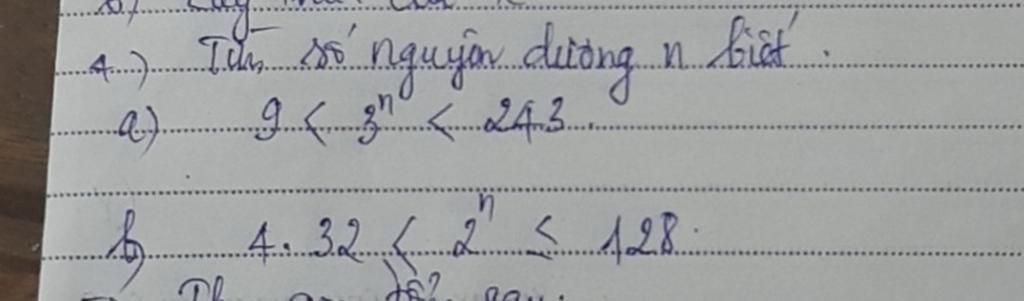 4) Tìm số nguyên dương n biết.
a) 9 < 3ⁿ < 243.
b) 4. 32 < 2ⁿ ≤ 128.